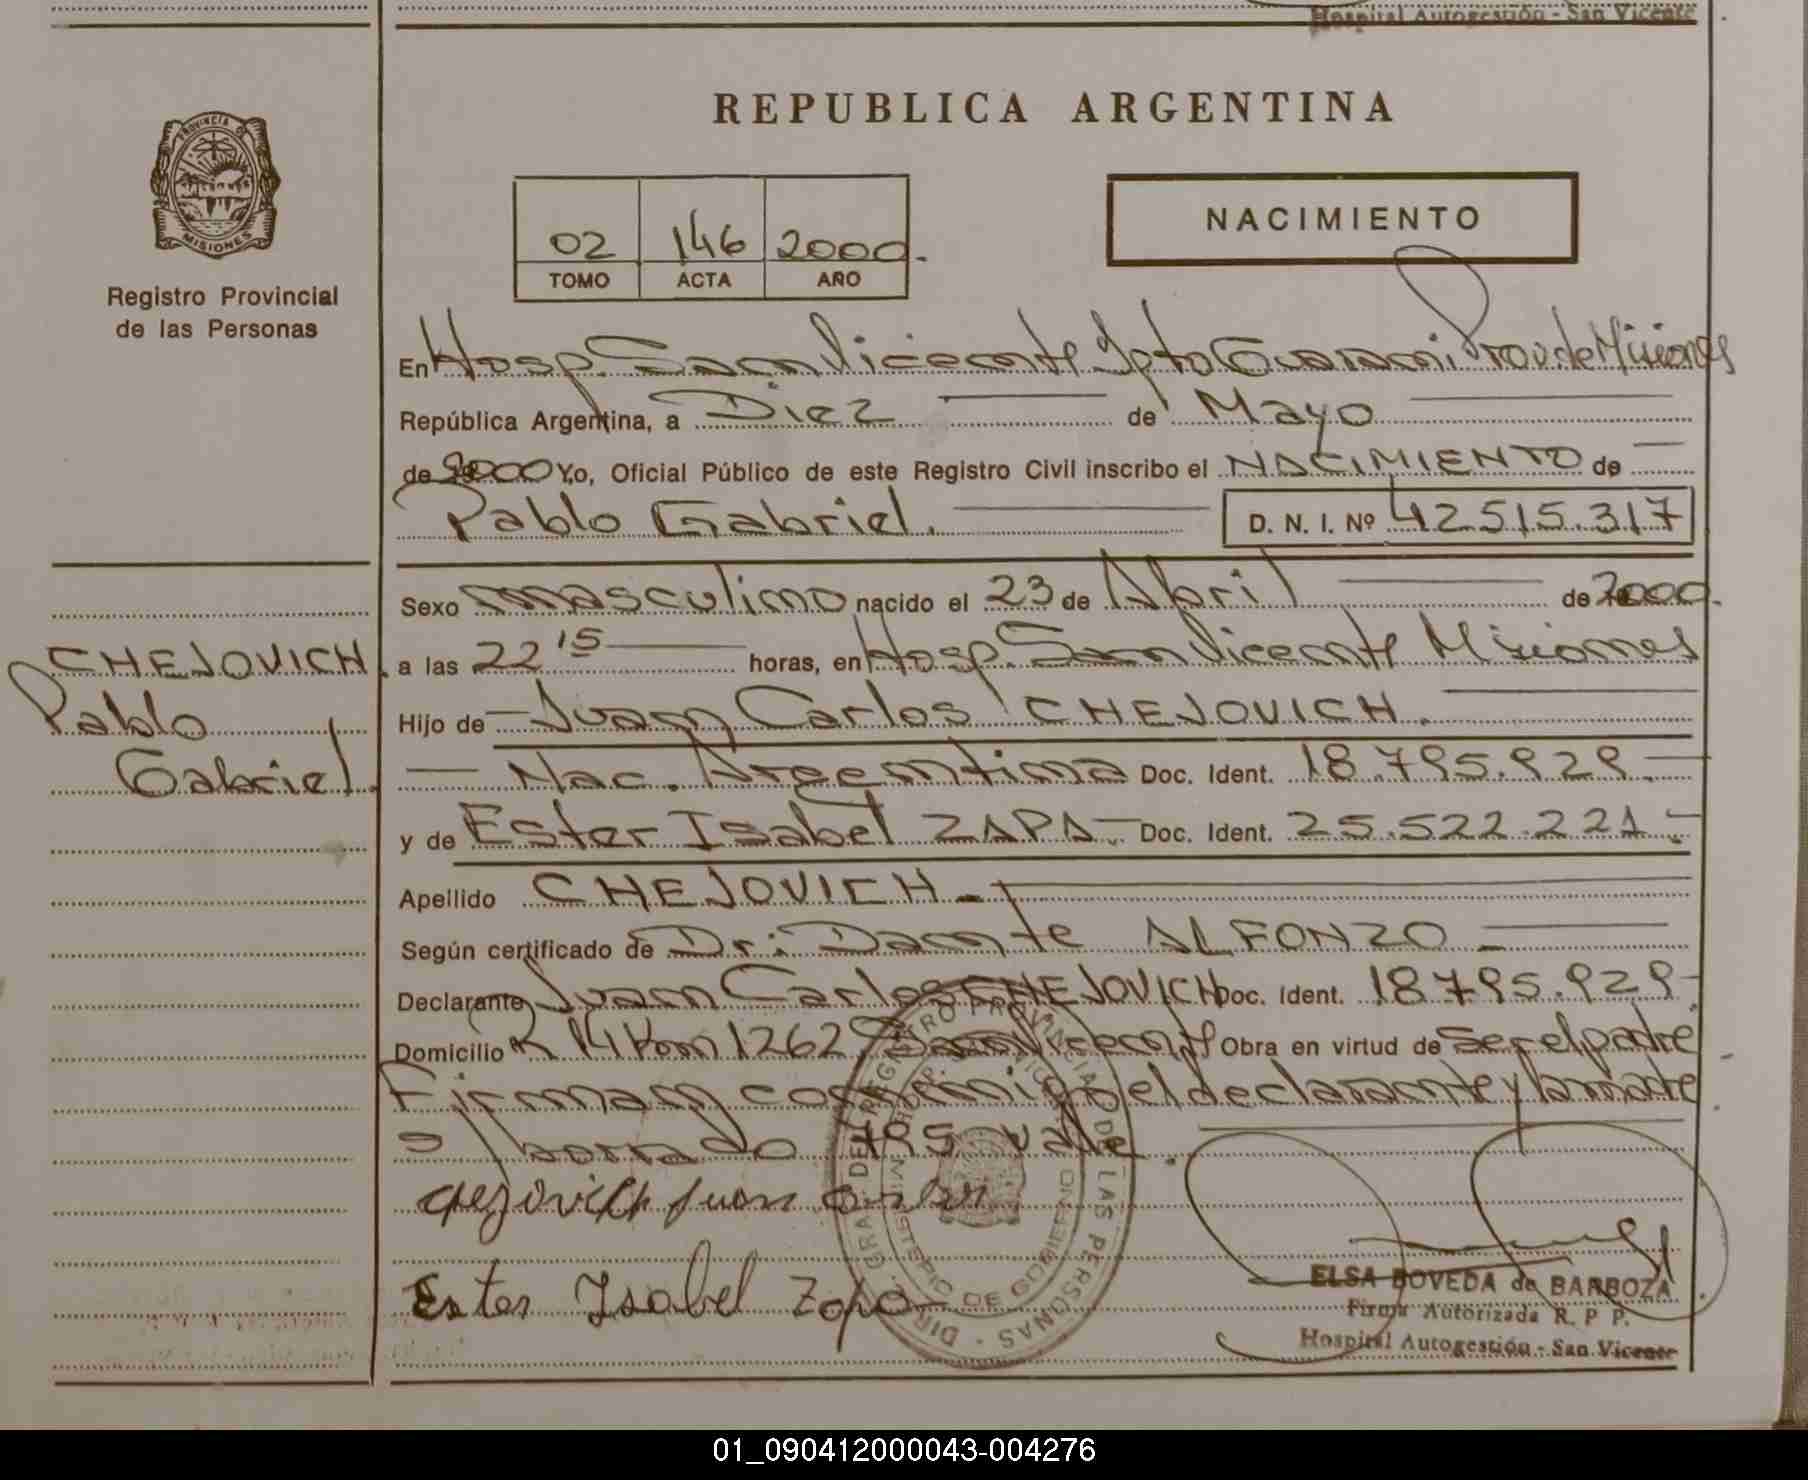 Hospital Autogestión - San Vicente
PROVINCIA D
MISIONES
Registro Provincial
de las Personas
REPUBLICA ARGENTINA
02 146 2000.
TOMO ACTA AÑO
NACIMIENTO
En Hosp. San Vicente Dpto Guarani Prov. de Misiones
República Argentina, a Diez de Mayo
de 2000 Yo, Oficial Público de este Registro Civil inscribo el NACIMIENTO de
Pablo Gabriel. D. N. I. Nº 42.515.317
Sexo masculino nacido el 23 de Abril de 2000.
CHEJOVICH
Pablo
Gabriel.
a las 22 15 horas, en Hosp. San Vicente Misiones
Hijo de Juan Carlos CHEJOVICH.
Nac. Argentina Doc. Ident. 18.795.929.
y de Ester Isabel ZAPA. Doc. Ident. 25.522.221.
Apellido CHEJOVICH
Según certificado de Dr: Dante ALFONZO
Declarante Juan Carlos CHEJOVICH Doc. Ident. 18.795.929.
Domicilio R 14 Km 1262 San Vicente Obra en virtud de ser el padre
Firman conmigo el declarante y la madre
s/borrado 795 vale.
juan
Ester Isabel Zapa
DIR. GRAL. DEL REGISTRO PROVINCIAL DE LAS PERSONAS
MINISTERIO DE GOBIERNO
ELSA BOVEDA de BARBOZA
Firma Autorizada R. P. P.
Hospital Autogestión - San Vicente
01_090412000043-004276